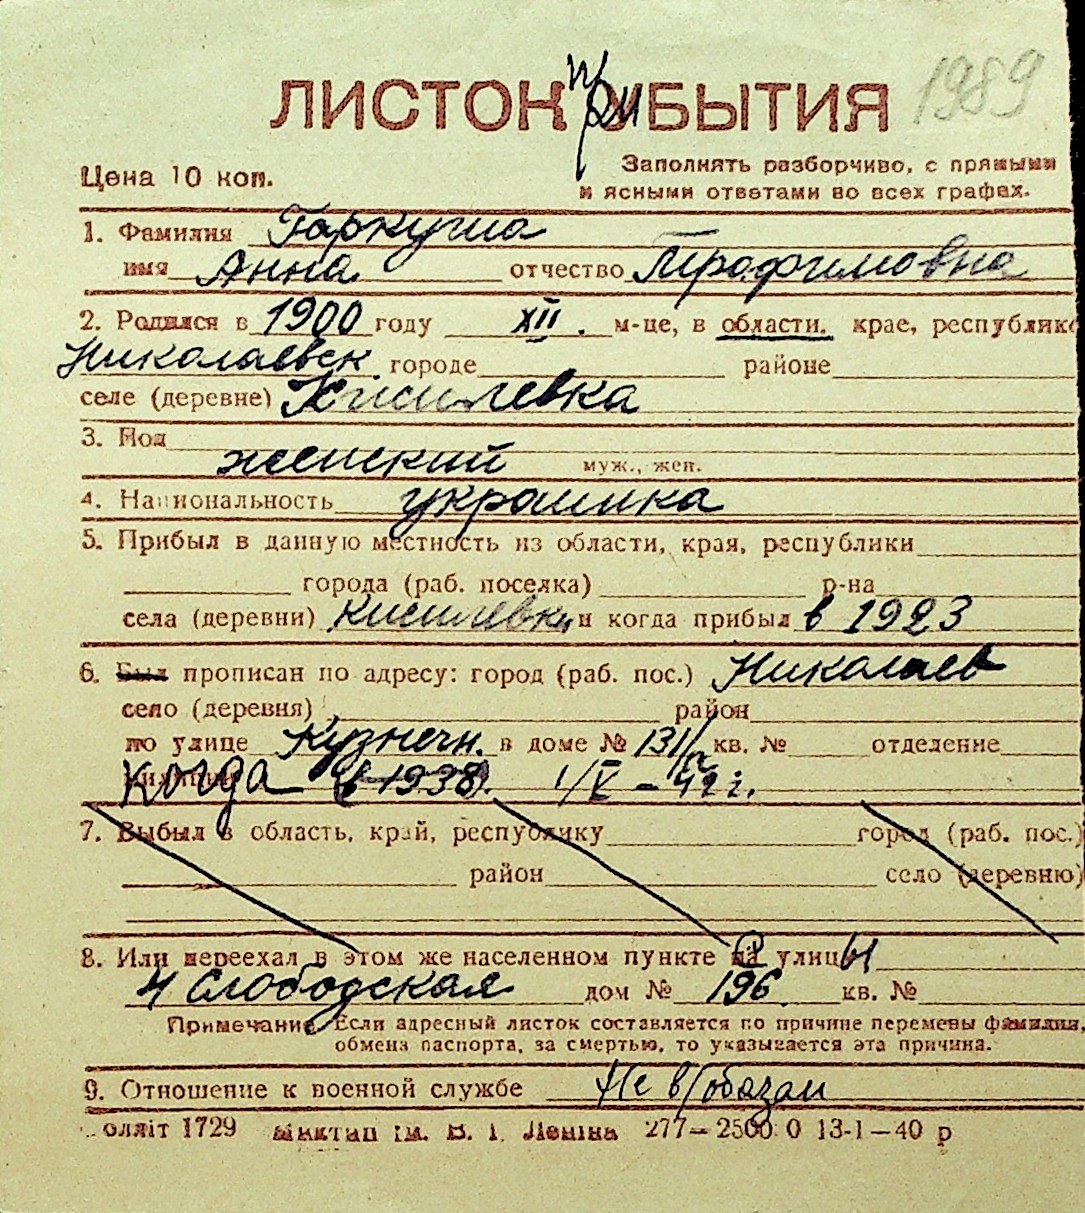 ЛИСТОК приБЫТИЯ 1989
Цена 10 коп. Заполнять разборчиво, с прямыми
и ясными ответами во всех графах.
1. Фамилия Гаркуша
имя Анна отчество Трофимовна
2. Родился в 1900 году XII. м-це, в области. крае, республике
Николаевск. городе районе
селе (деревне) Кисилевка
3. Пол женский муж., жен.
4. Национальность украинка
5. Прибыл в данную местность из области, края, республики
города (раб. поселка) р-на
села (деревни) Кисилевки и когда прибыл в 1923
6. Был прописан по адресу: город (раб. пос.) Николаев
село (деревня) район
по улице Кузнечн. в доме № 131/а кв. № отделение
когда (в 1938). 1/V – 42 г.
7. Выбыл в область, край, республику город (раб. пос.)
район село (деревню)
8. Или переехал в этом же населенном пункте с улицы
4 Слободская дом № 196. кв. №
Примечание. Если адресный листок составляется по причине перемены фамилии,
обмена паспорта, за смертью, то указывается эта причина.
9. Отношение к военной службе Не в/обязан
олліт 1729 ім. В. І. Леніна 277— 2500 0 13-1—40 р